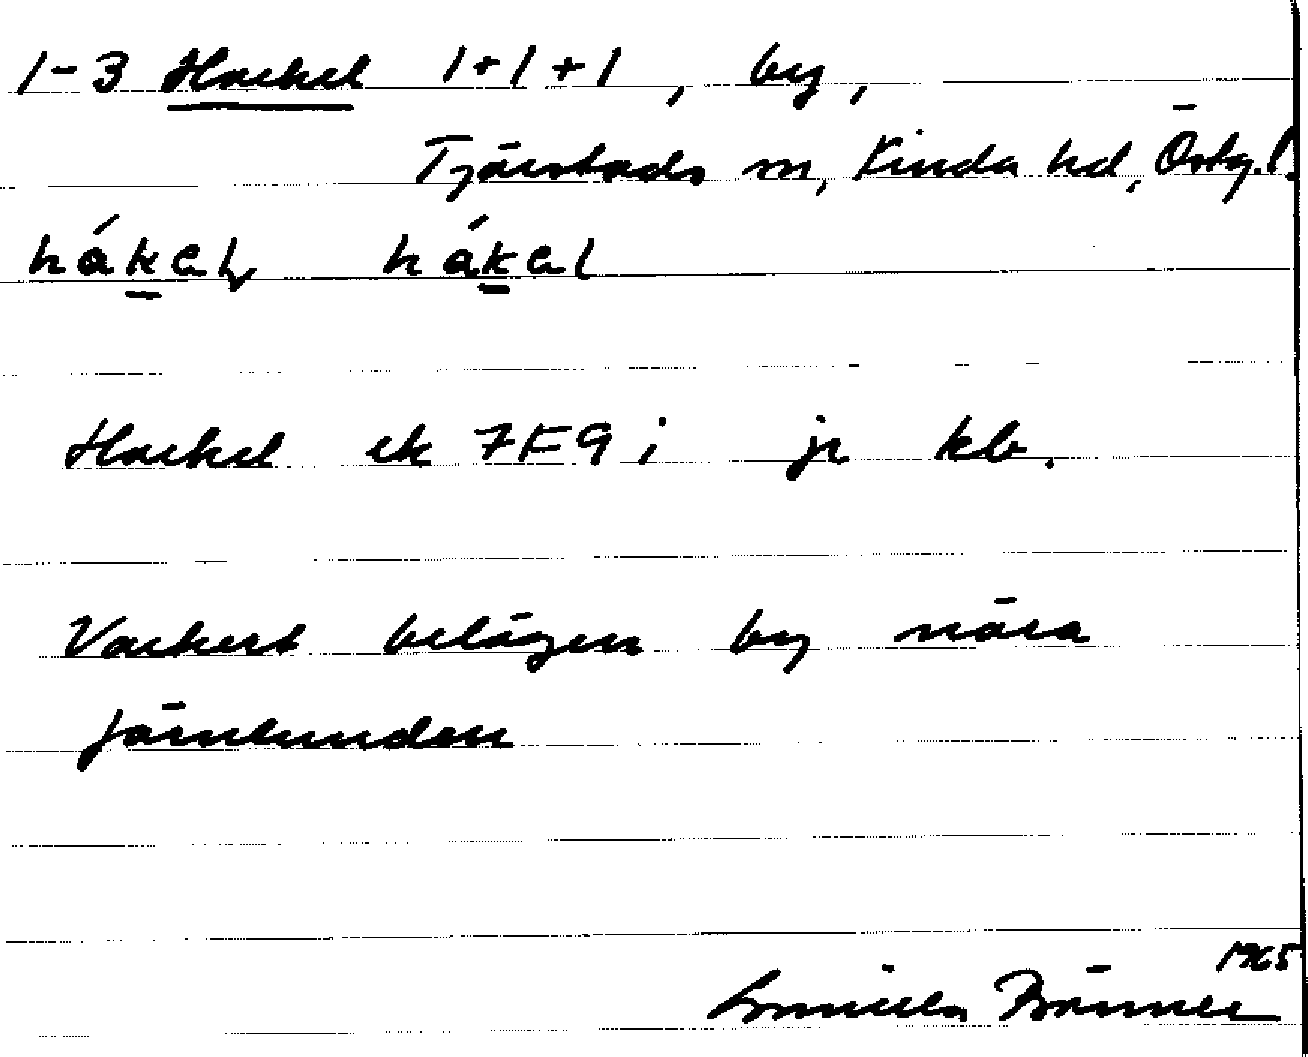 1-3 Hackel 1+1+1, by,
Tjärstads sn, Kinda hd, Östg.l.
hákal, hákal
Hackel ek 7F9i jr kb.
Vackert belägen by nära
Järnlunden
1965
Gunilla Bränner